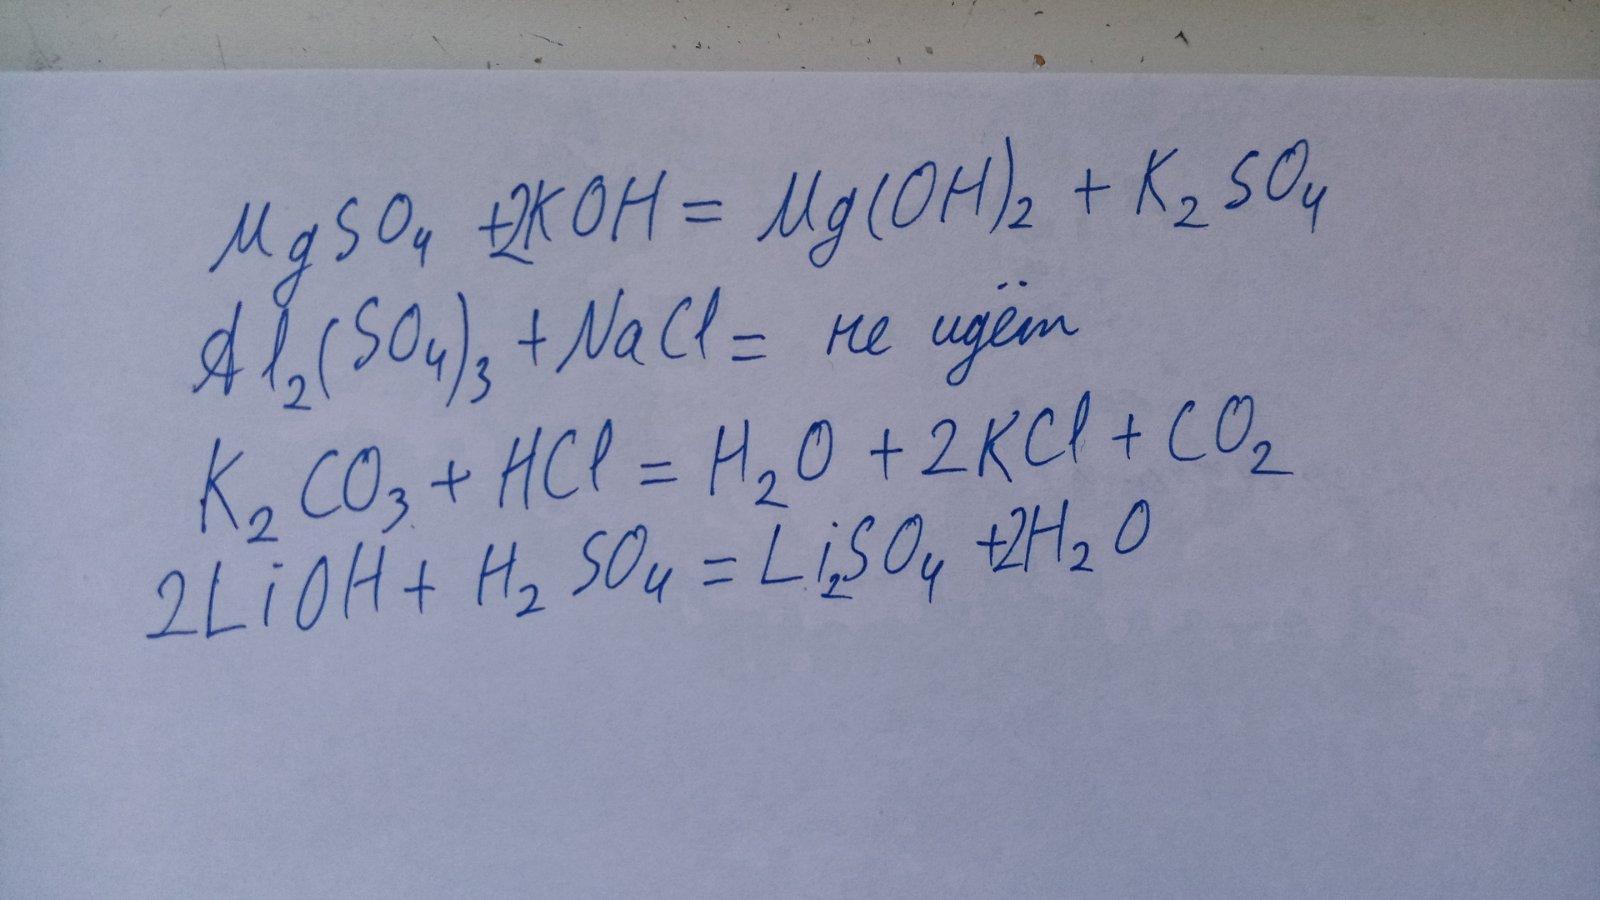 MgSO₄ +2KOH = Mg(OH)₂ + K₂SO₄
Al₂(SO₄)₃ + NaCl = не идёт
K₂CO₃ + HCl = H₂O + 2KCl + CO₂
2LiOH + H₂SO₄ = Li₂SO₄ +2H₂O